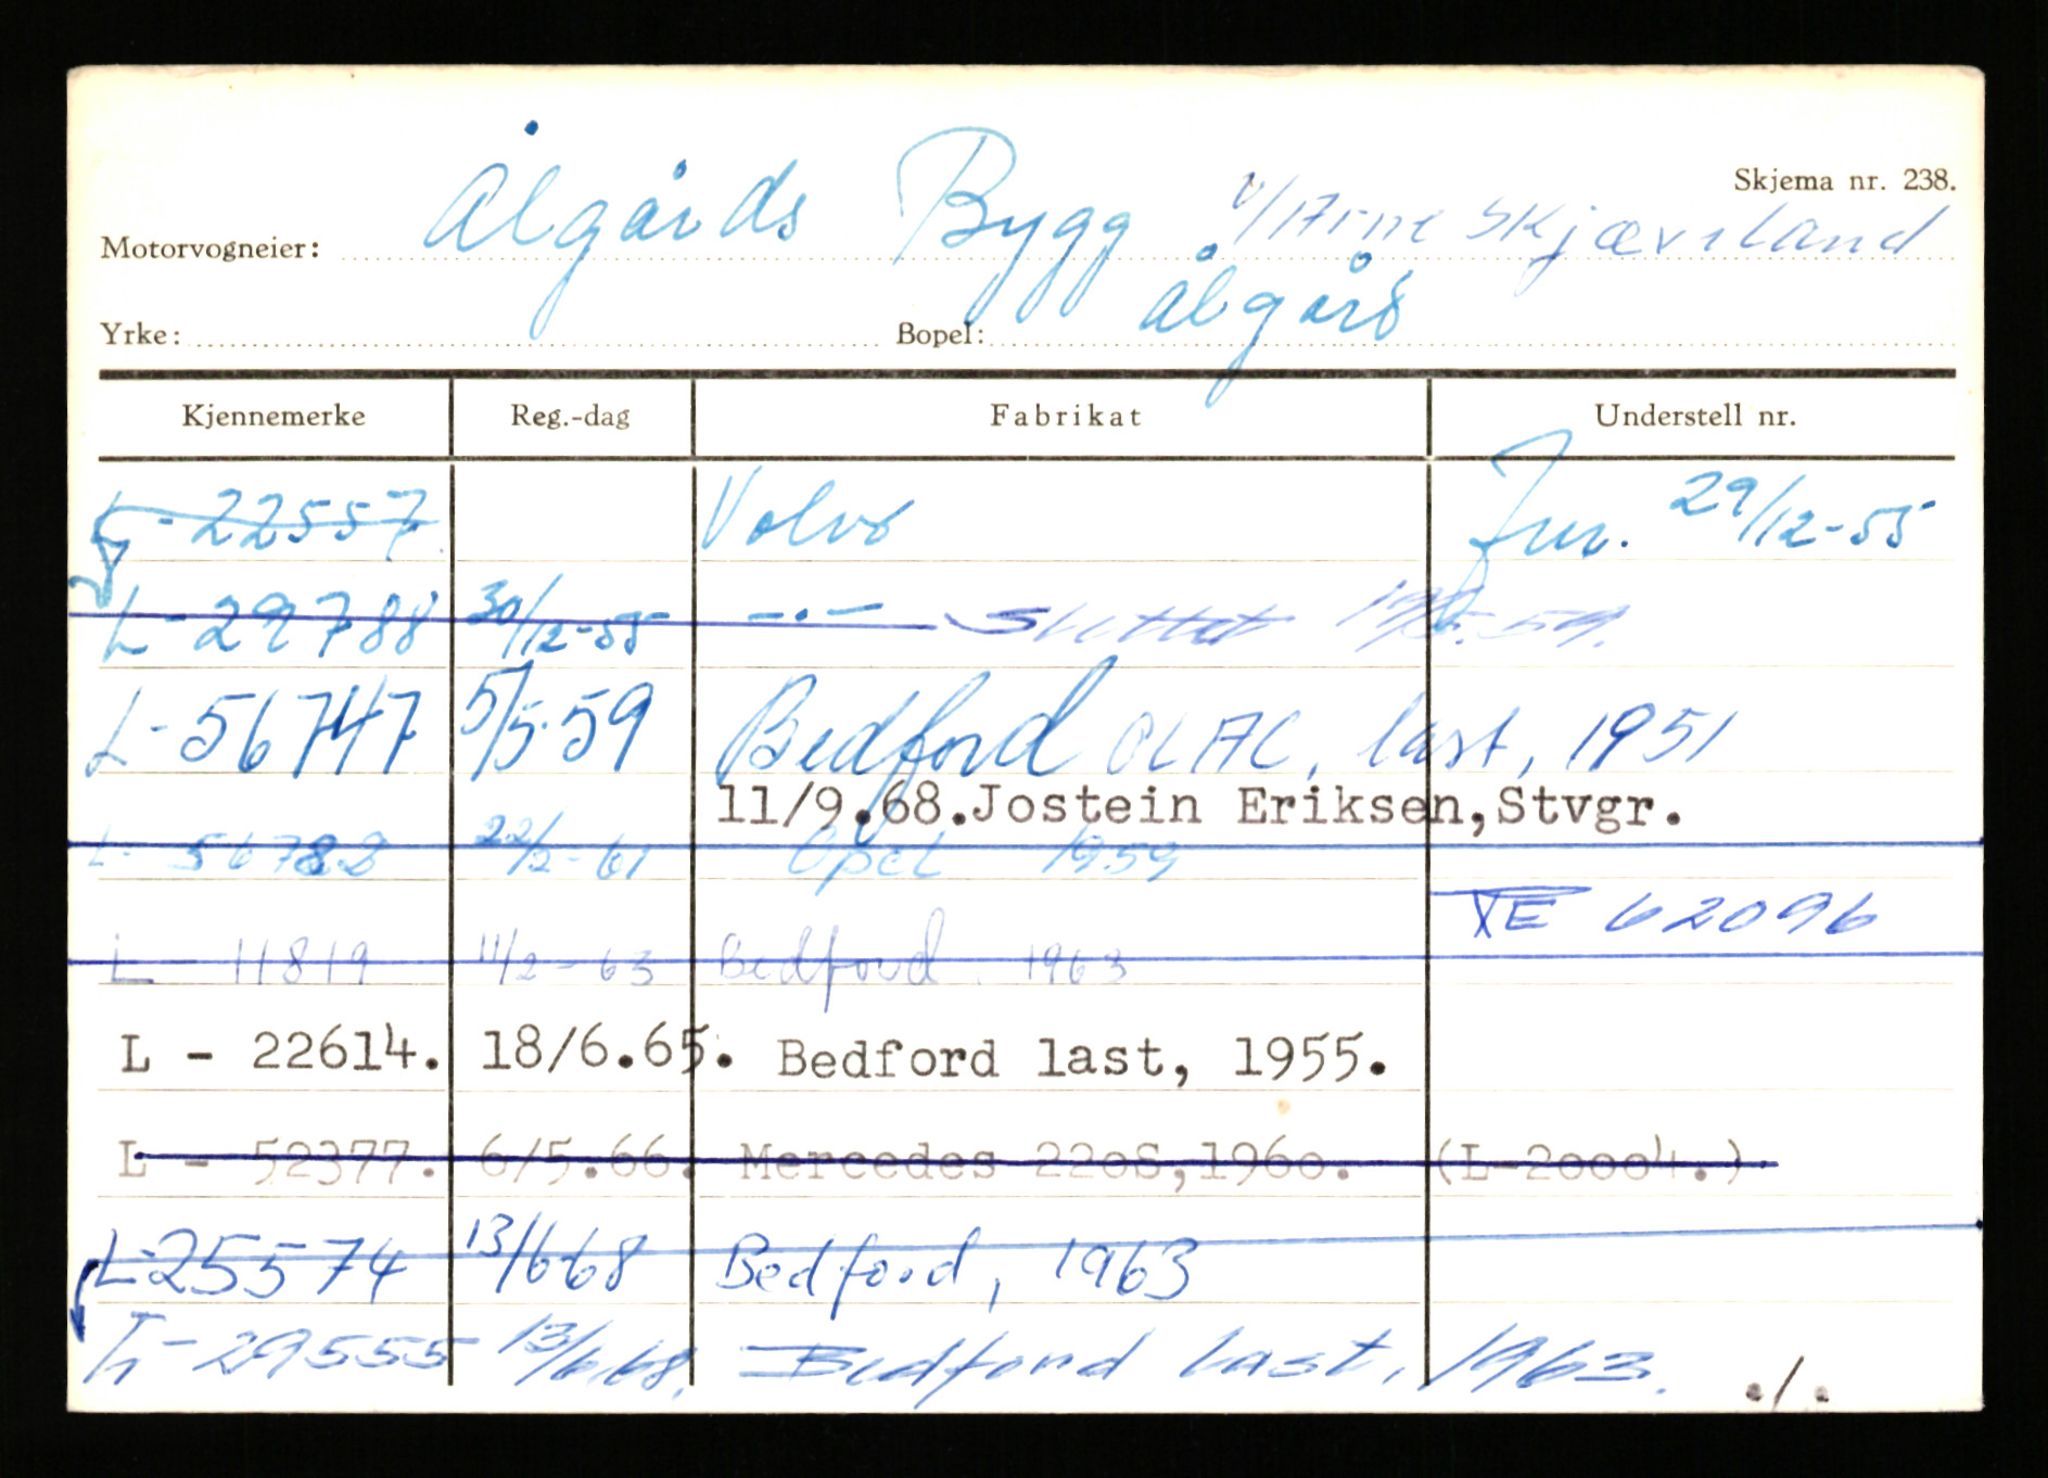 Skjema nr. 238.
Motorvogneier: Ålgårds Bygg v/Arne Skjæveland
Yrke: Bopel: Ålgård
Kjennemerke Reg.-dag Fabrikat Understell nr.
L-22557 Volvo 29/12-55
L-29788 30/12-55 —·— Slettet
L-56747 5/5-59 Bedford OLAC, last, 1951
11/9.68.Jostein Eriksen,Stvgr.
L- 56788 22/2-61 Opel 1959
XE 62096
L 11819 11/2-63 Bedford 1963
L - 22614. 18/6.65. Bedford last, 1955.
L - 52377. 6/5.66. Mercedes 22oS,196o. (L-2ooo4.)
L-25574 13/6 68 Bedford, 1963
L-29555 13/6 68. Bedford last, 1963.
./.